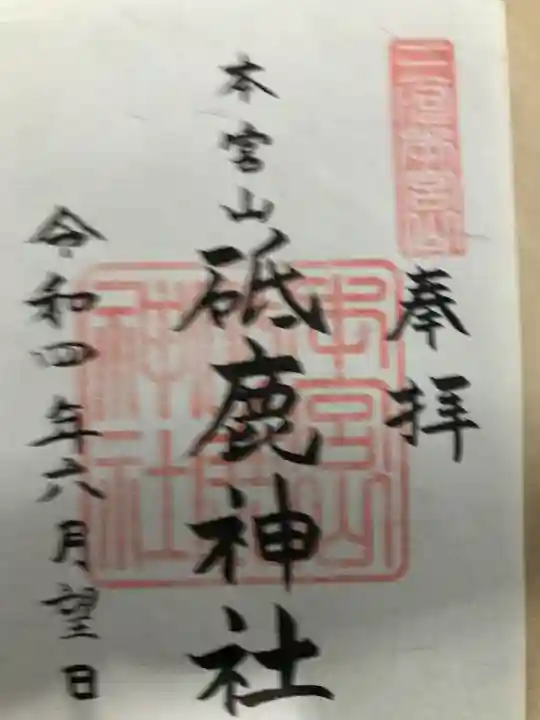 三河本宮山
奉拝
本宮山
砥鹿神社
本宮山
神社
令和四年六月望日